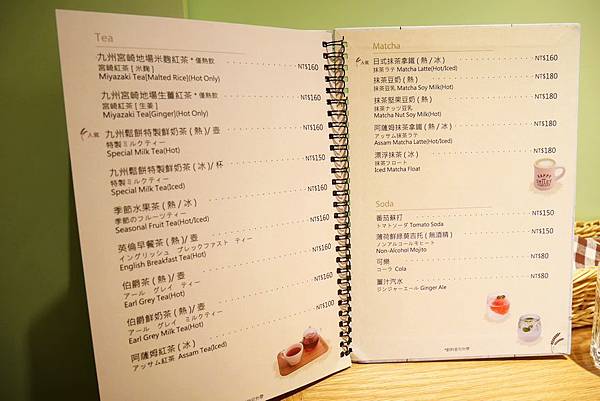 Tea
九州宮崎地場米麴紅茶 *僅熱飲 NT$160
宮崎紅茶 [ 米麴 ]
Miyazaki Tea[Malted Rice](Hot Only)
九州宮崎地場生薑紅茶 *僅熱飲 NT$160
宮崎紅茶 [ 生姜 ]
Miyazaki Tea[Ginger](Hot Only)
人氣 九州鬆餅特製鮮奶茶 ( 熱 )/ 壺 NT$160
特製ミルクティー
Special Milk Tea(Hot)
九州鬆餅特製鮮奶茶 ( 冰 )/ 杯 NT$150
特製ミルクティー
Special Milk Tea(Iced)
季節水果茶 ( 熱 / 冰 ) NT$160
季節のフルーツティー
Seasonal Fruit Tea(Hot/Iced)
英倫早餐茶 ( 熱 )/ 壺 NT$160
イングリッシュ ブレックファスト ティー
English Breakfast Tea(Hot)
伯爵茶 ( 熱 )/ 壺 NT$160
アール グレイ ティー
Earl Grey Tea(Hot)
伯爵鮮奶茶 ( 熱 )/ 壺 NT$160
アール グレイ ミルクティー
Earl Grey Milk Tea(Hot)
阿薩姆紅茶 ( 冰 ) NT$100
アッサム紅茶 Assam Tea(Iced)
Matcha
人氣 日式抹茶拿鐵 ( 熱 / 冰 ) NT$160
抹茶ラテ Matcha Latte(Hot/Iced)
抹茶豆奶 ( 熱 ) NT$180
抹茶豆乳 Matcha Soy Milk(Hot)
抹茶堅果豆奶 ( 熱 ) NT$180
抹茶ナッツ豆乳
Matcha Nut Soy Milk(Hot)
阿薩姆抹茶拿鐵 ( 熱 / 冰 ) NT$180
アッサム抹茶ラテ
Assam Matcha Latte(Hot/Iced)
漂浮抹茶 ( 冰 ) NT$180
抹茶フロート
Iced Matcha Float
Soda
番茄蘇打 NT$150
トマトソーダ Tomato Soda
薄荷鮮綠莫吉托 ( 無酒精 ) NT$150
ノンアルコールモヒート
Non-Alcohol Mojito
可樂 NT$80
コーラ Cola
薑汁汽水 NT$80
ジンジャーエール Ginger Ale